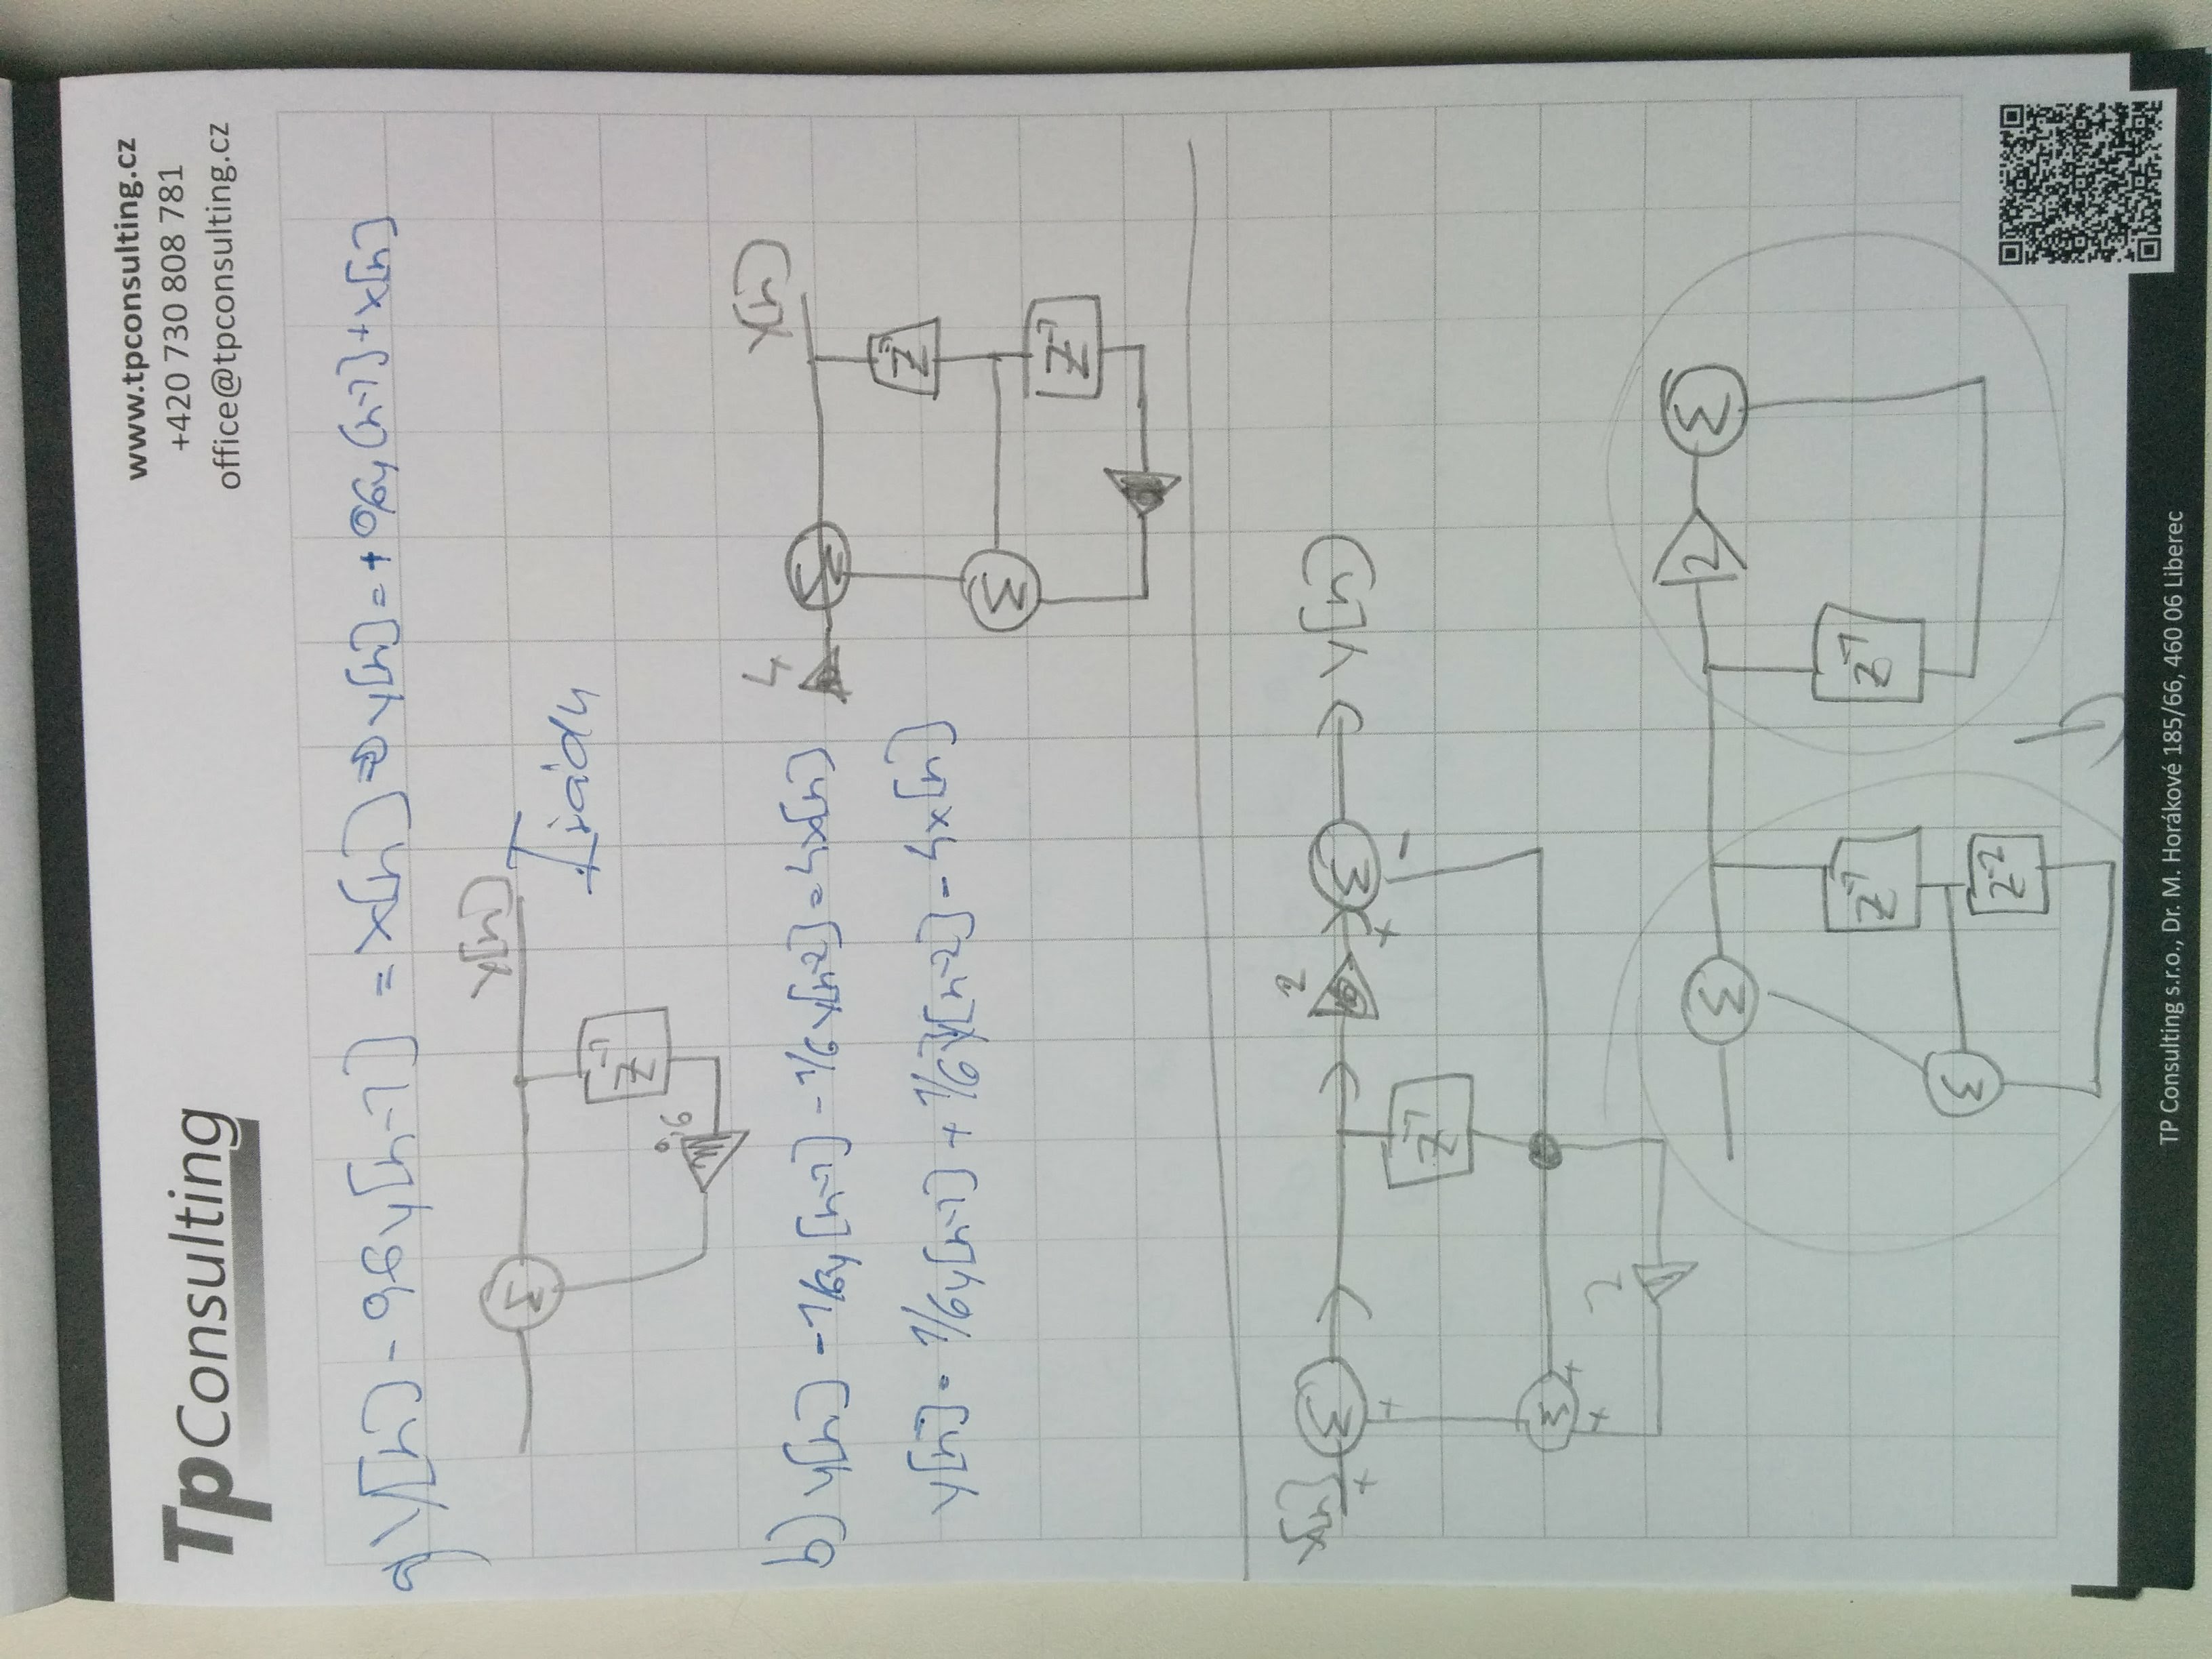 TpConsulting
www.tpconsulting.cz
+420 730 808 781
office@tpconsulting.cz
a) y[n] - 0,6y[n-1] = x[n] ⇒ y[n] = + 0,6y[n-1] + x[n]
x[n]
I řádu
Σ
Z⁻¹
0,6
b) y[n] - 1/6y[n-1] - 1/6y[n-2] = 4x[n]
4
Σ
x[n]
y[n] = 1/6y[n-1] + 1/6y[n-2] - 4x[n]
Z⁻¹
Σ
Z⁻¹
x[n]
+
Σ
+
2
+
Σ
-
y[n]
Z⁻¹
Σ
+
+
2
Σ
2
Σ
Z⁻¹
Z⁻¹
Σ
Z⁻²
TP Consulting s.r.o., Dr. M. Horákové 185/66, 460 06 Liberec